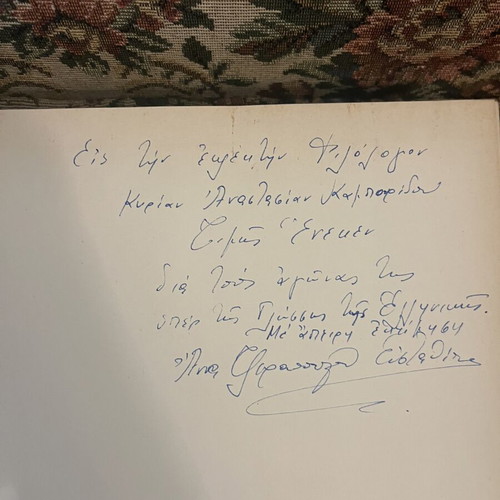 Εἰς τήν ἐκλεκτήν Φιλόλογον
Κυρίαν Ἀναστασίαν Καμπαρίδου
Τιμῆς Ἕνεκεν
διά τούς ἀγῶνας της
ὑπέρ τῆς Γλώσσης τῆς Ἑλληνικῆς.
Μέ ἄπειρη ἐκτίμηση
Ἄννα Τζιροπούλου Εὐσταθίου